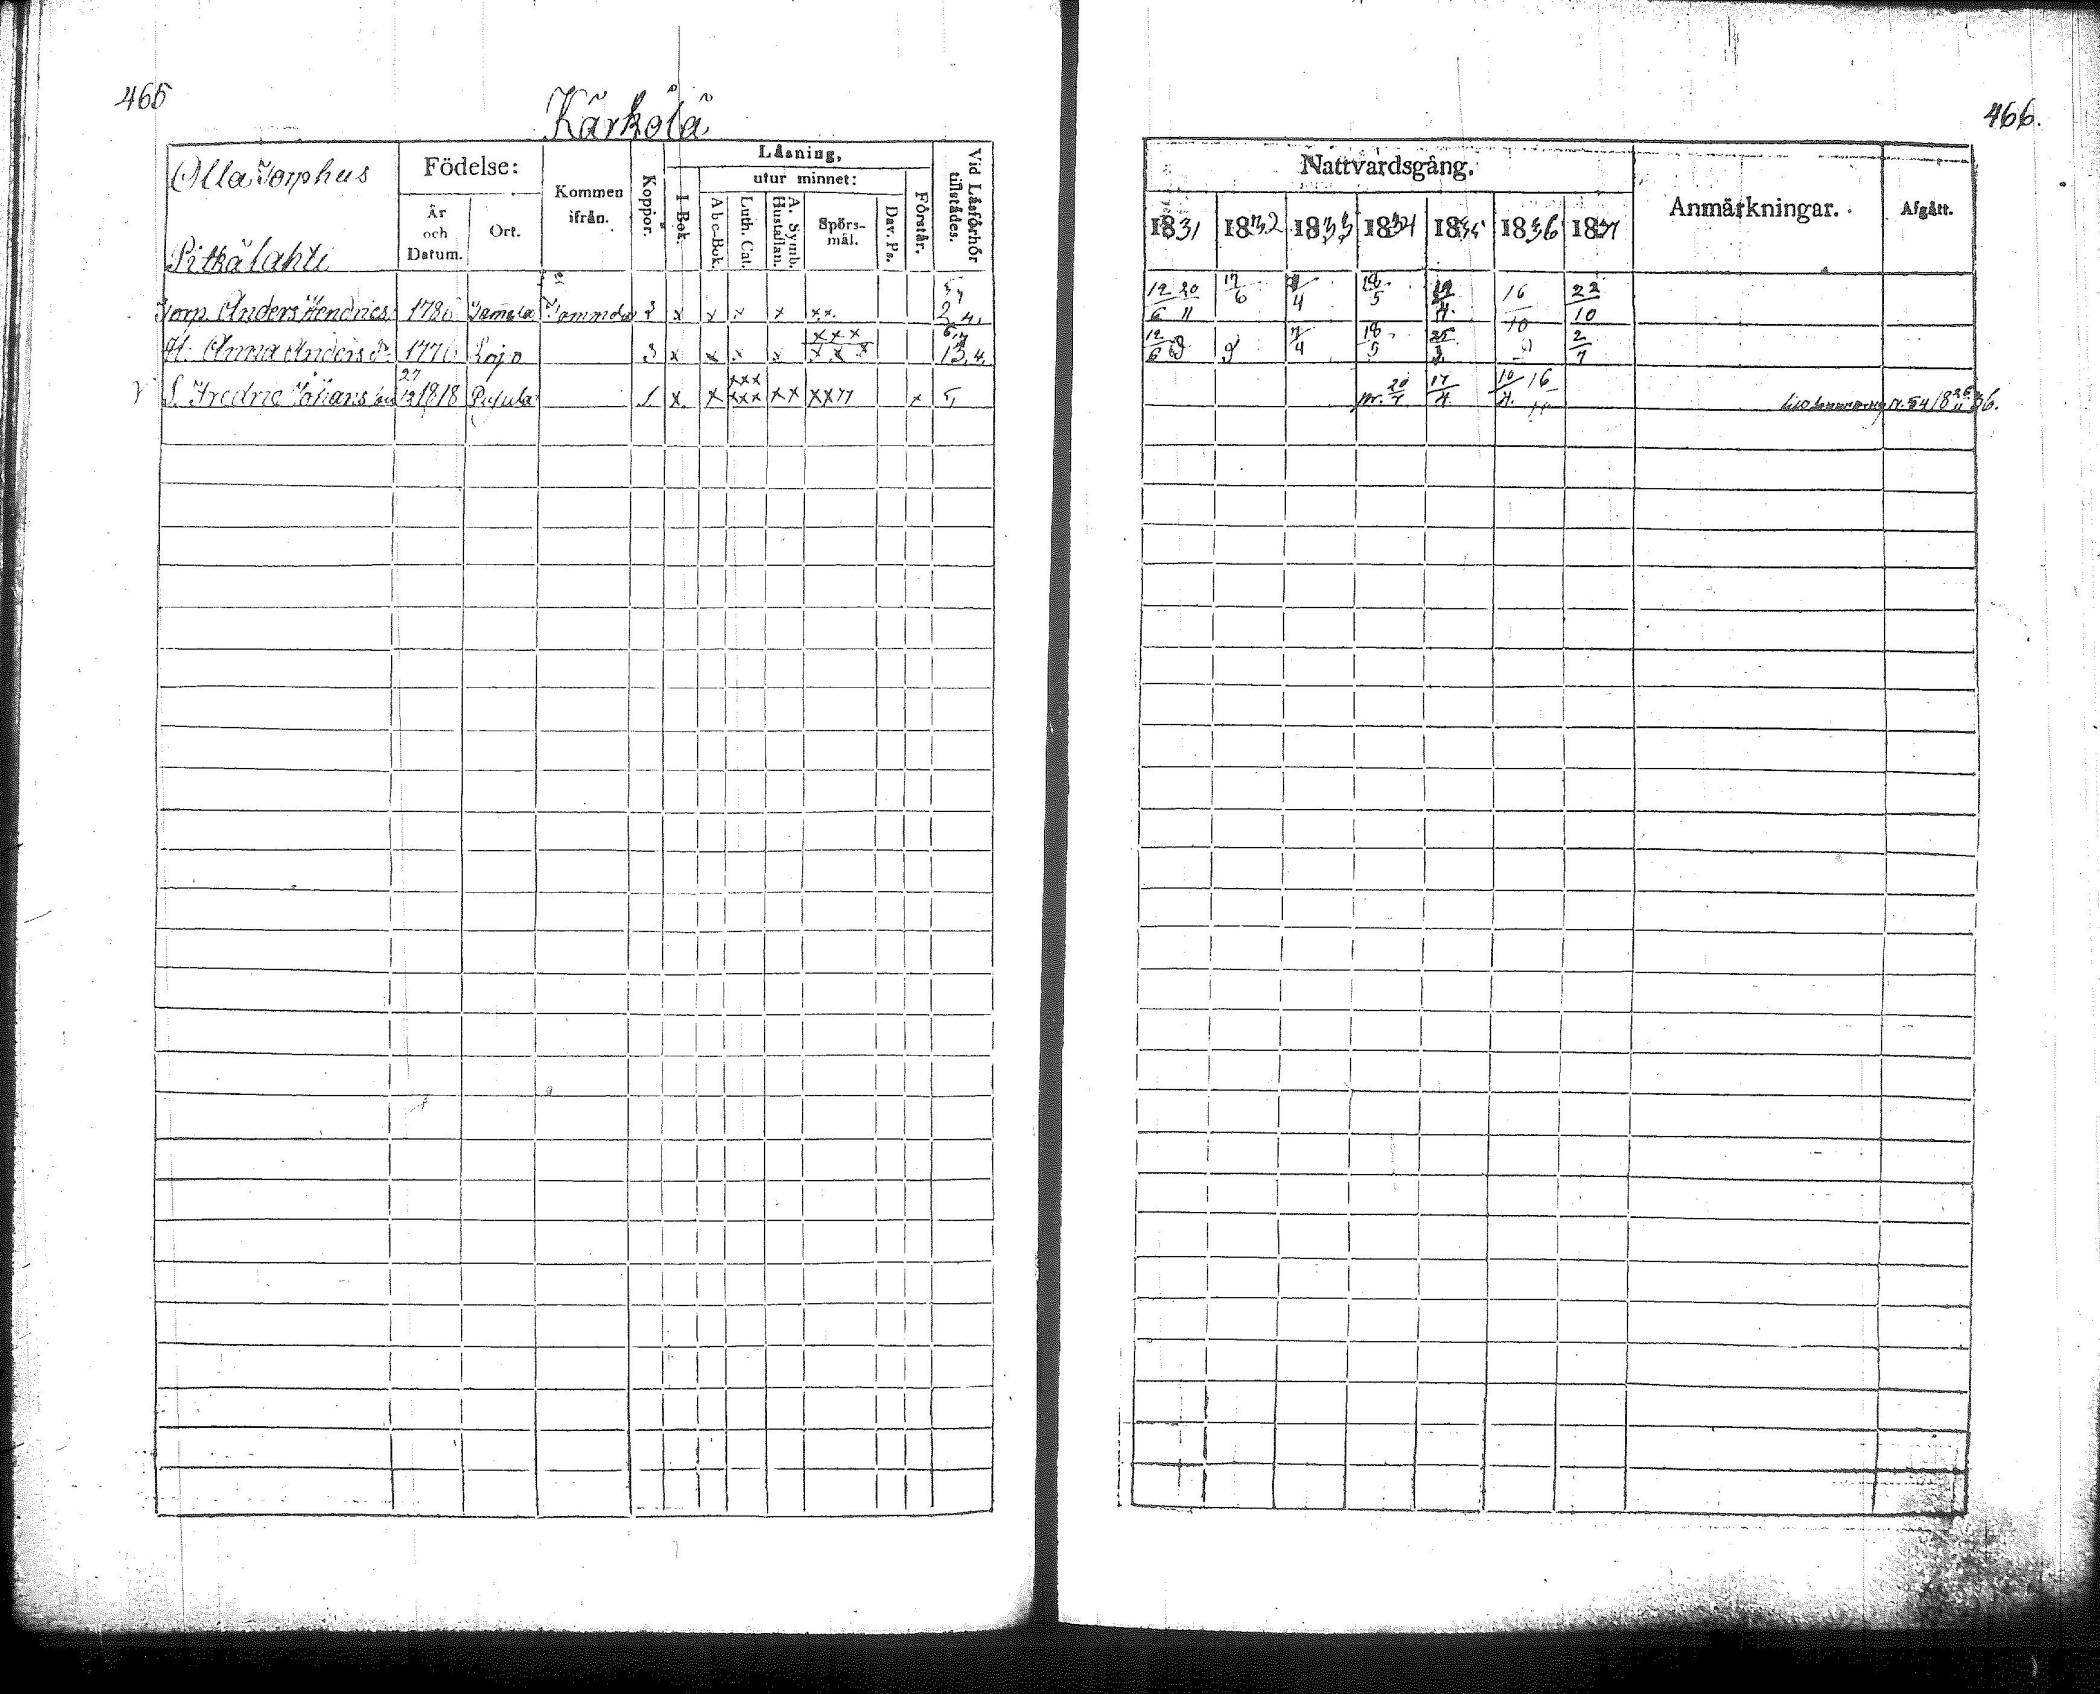 465
Kärkölä
Olla Torphus
Pitkälahti
Födelse:
År och Datum.
Ort.
Kommen ifrån.
Koppor.
Läsning,
I Bok.
utur minnet:
A b c-Bok.
Luth. Cat.
A. Symb. Hustaflan.
Spörs-mål.
Dav. Ps.
Förstår.
Vid Läsförhör tillstädes.
Torp. Anders Hendrics. 178 Tamela 3 x x x x xx. 2 4.
H. Anna Anders dr. 177 Lojo 3 x x x x xxx xxx 13.4.
S. Fredric Johans son 27/12 1818 Pusula 1. x x xxx xxx xx xx x 5
466.
Nattvardsgång.
Anmärkningar.
Afgått.
1831 1832 1833 1834 1835 1836 1837
12/6 20/11 17/6 /4 18/5 16/10 22/10
12/6 9 9 7/4 18/5 25/3 2/7
pr. 20/7 17/4 10/4. 16 
N. 54 18 26/11 36.